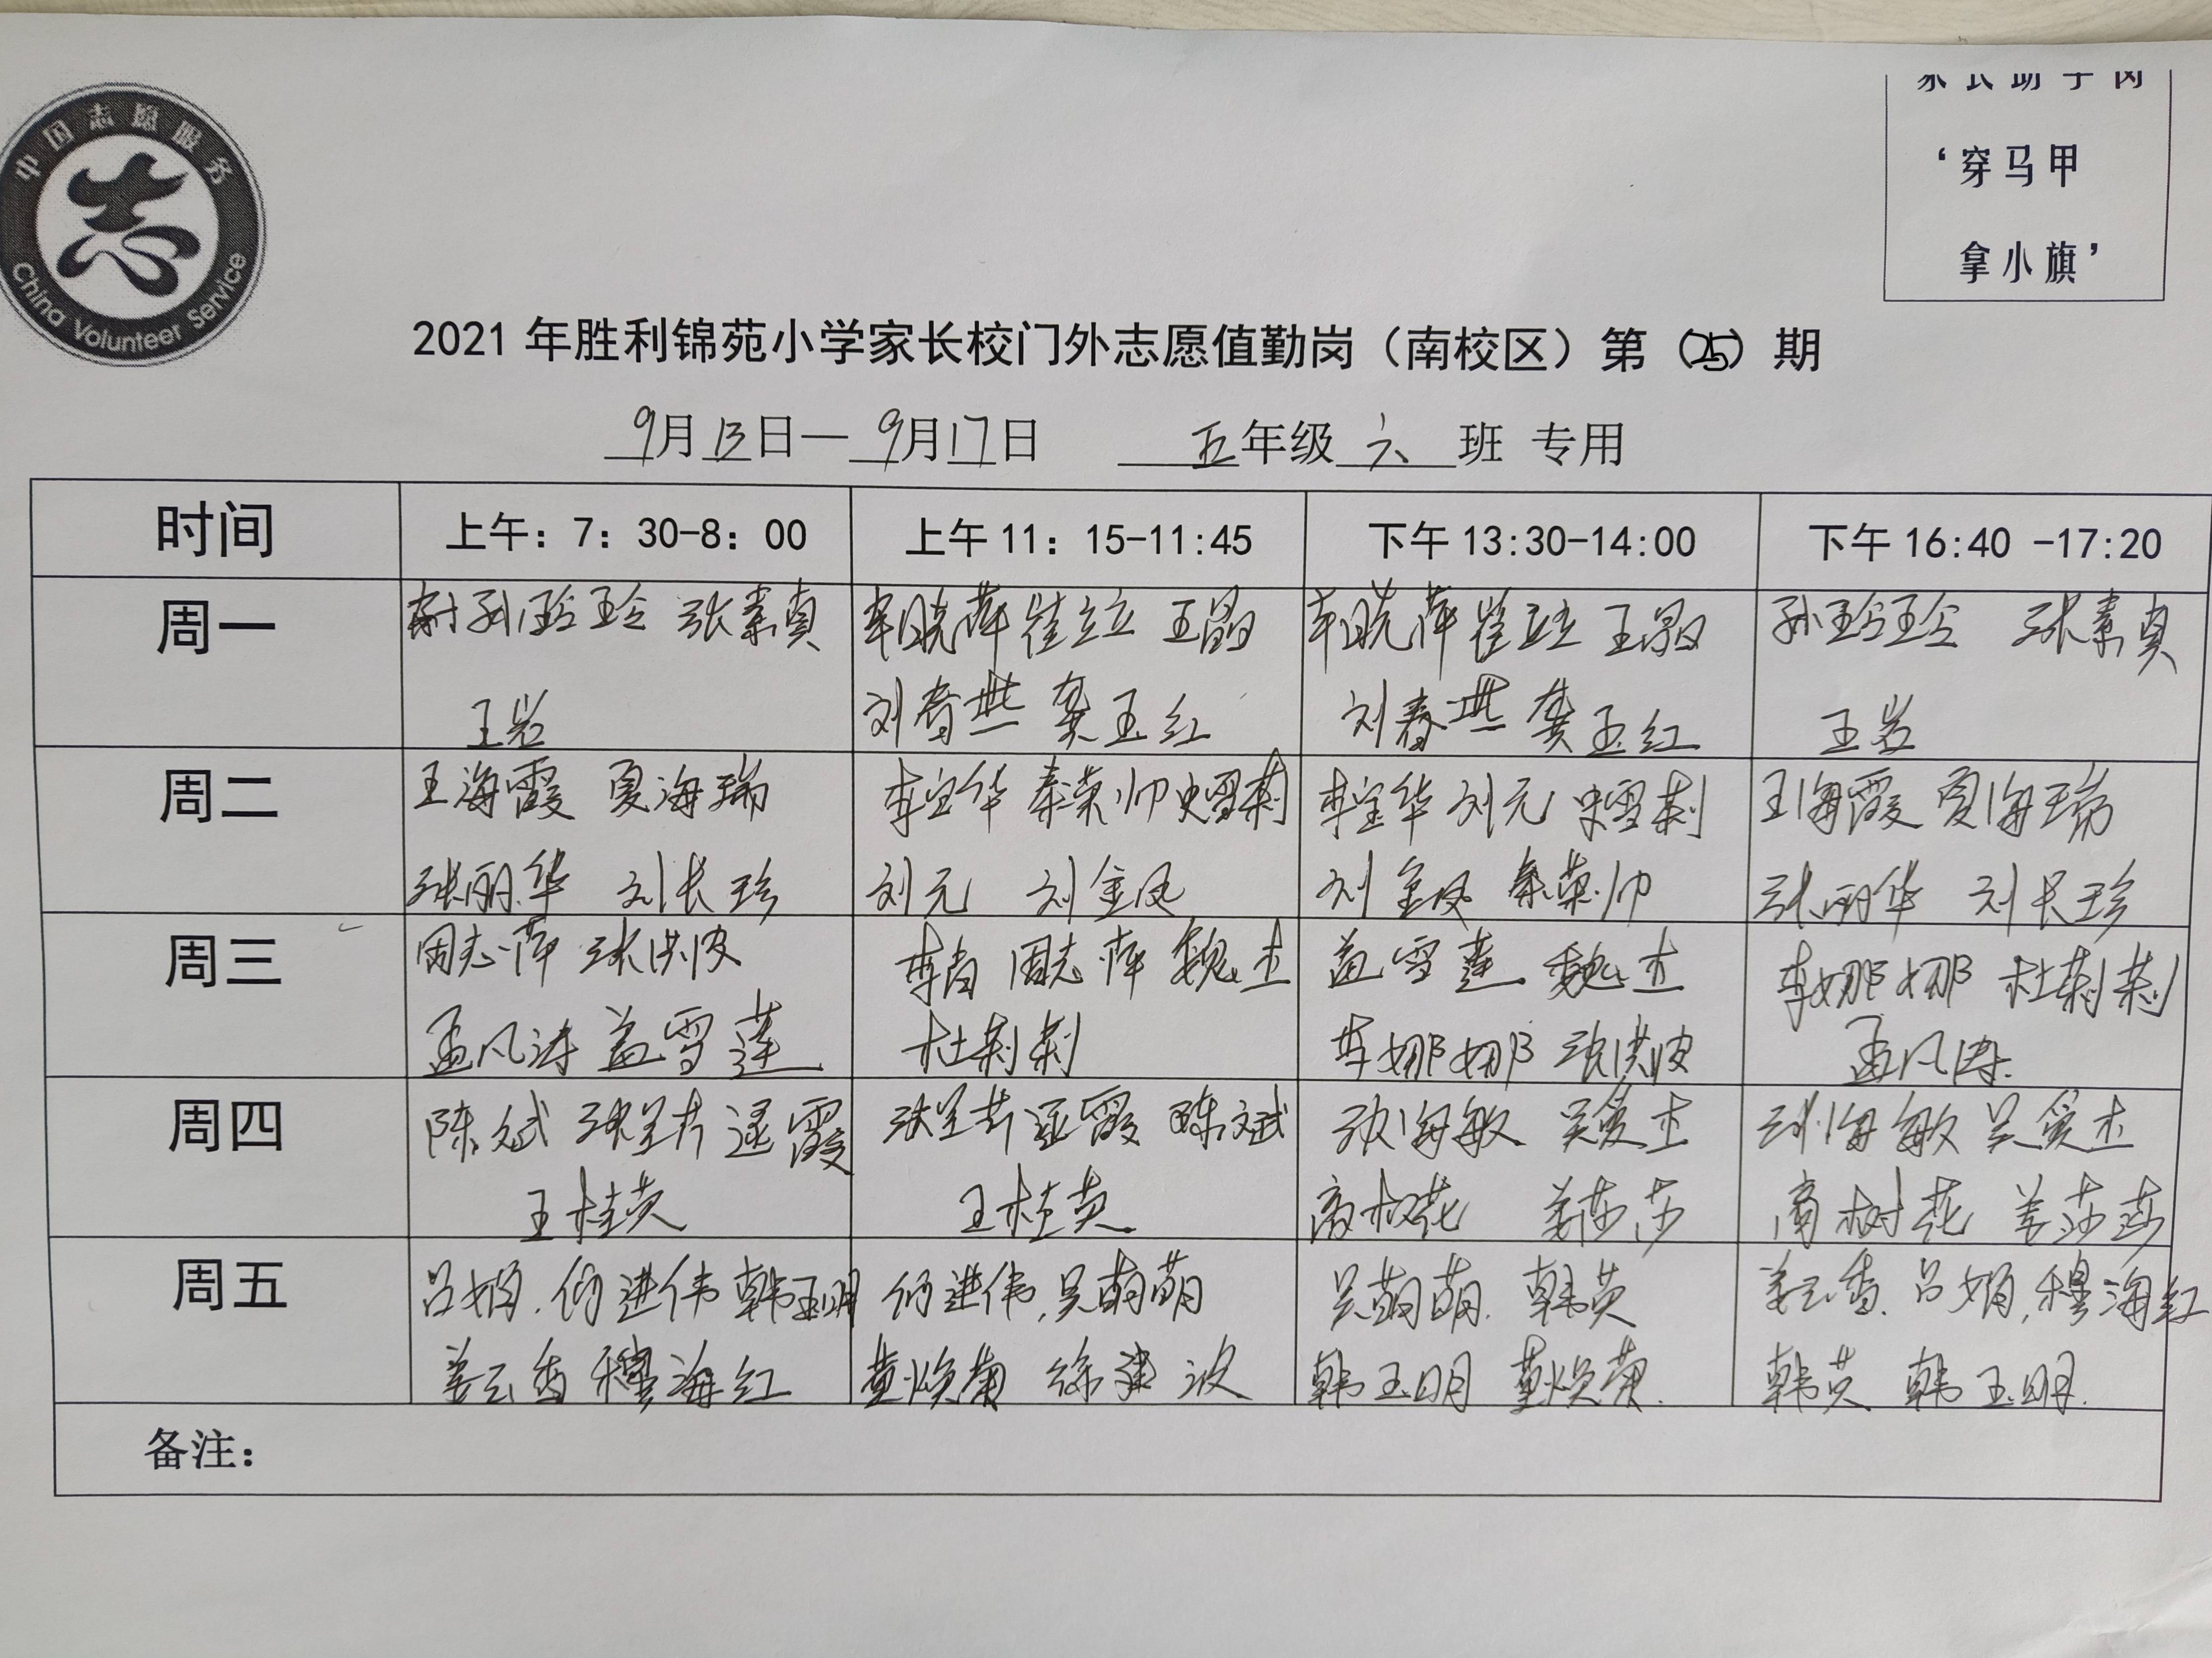 家长助学岗
‘穿马甲
拿小旗’
中国志愿服务
China Volunteer Service
2021年胜利锦苑小学家长校门外志愿值勤岗（南校区）第（25）期
9月13日—9月17日 五年级六班 专用
时间 上午：7：30-8：00 上午11：15-11:45 下午13:30-14:00 下午16:40 -17:20
周一 孙玲玲 张素真 李晓萍 崔立立 王晶 李晓萍 崔立立 孙玲玲 张素真
王岩 刘春燕 龚玉红 刘春燕 龚玉红 王岩
周二 王海霞 夏海瑞 李宝华 秦荣帅 史雪莉 李宝华 刘元 史雪莉 王海霞 夏海瑞
张丽华 刘长珍 刘元 刘金凤 刘金凤 秦荣帅 张丽华 刘长珍
周三 周志萍 张洪波 周志萍 魏杰 盖雪莲 魏杰 李娜娜 杜莉莉
孟凡涛 盖雪莲 杜莉莉 李娜娜 张洪波 孟凡涛
周四 陈文斌 陈文斌 张海敏 吴爱杰 张海敏 吴爱杰
王桂英 王桂英 商树花 姜莎莎 商树花 姜莎莎
周五 吕娟. 何进伟 韩玉明 何进伟, 吴萌萌 吴萌萌. 韩英 姜云香. 吕娟, 穆海红
姜云香 穆海红 徐建波 韩玉明 韩英 韩玉明.
备注：